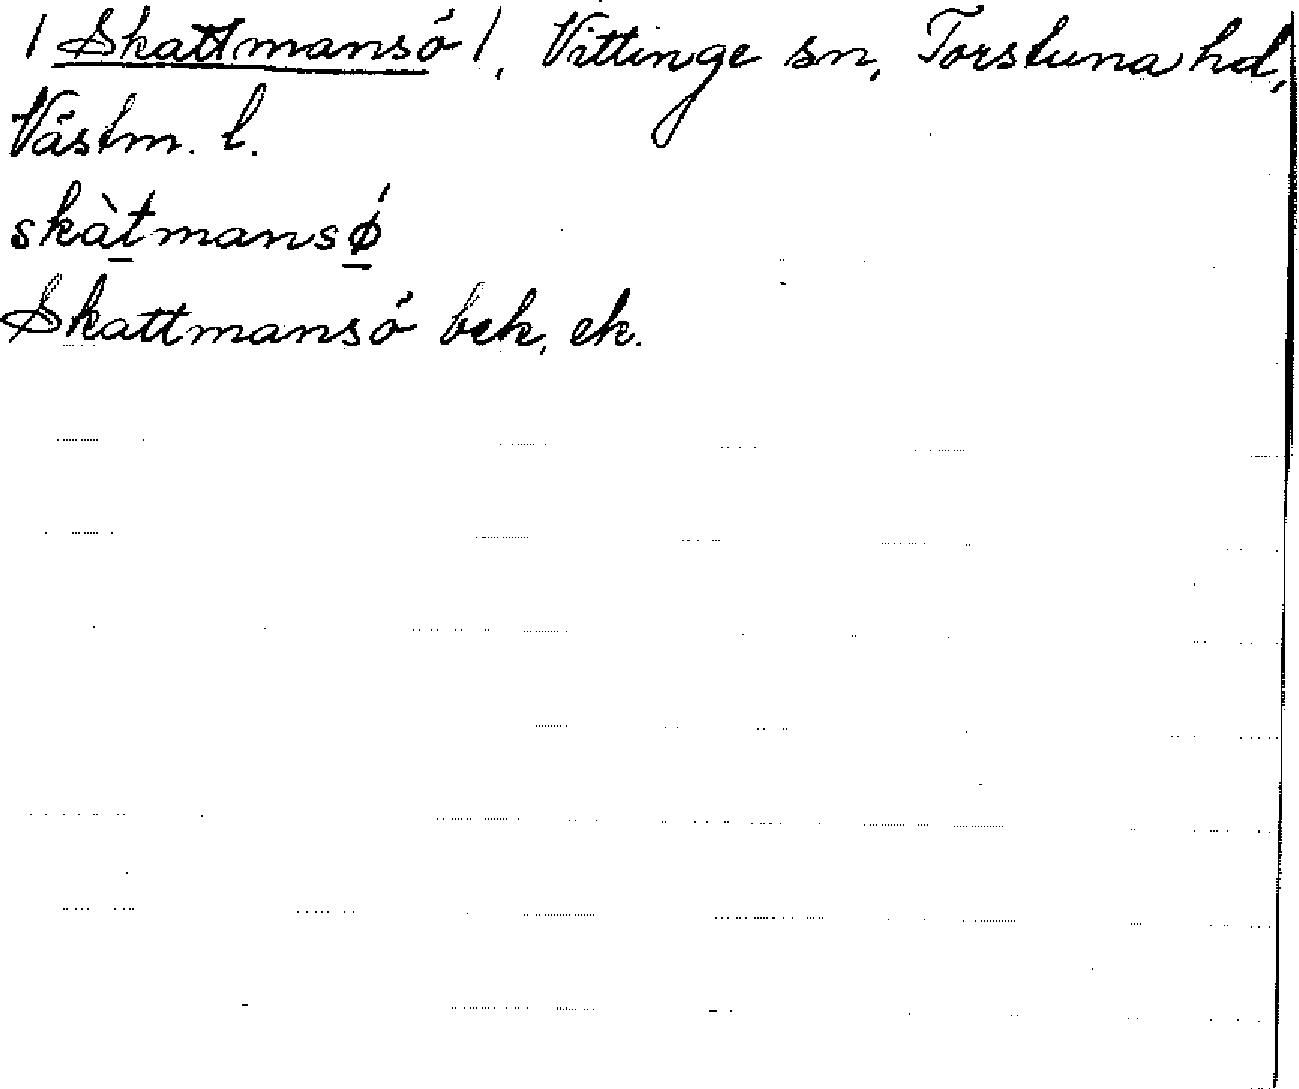 / Skattmansö /, Vittinge sn, Torstuna hd,
Västm. l.
skàt̲mansǿ̲
Skattmansö bek, ek.